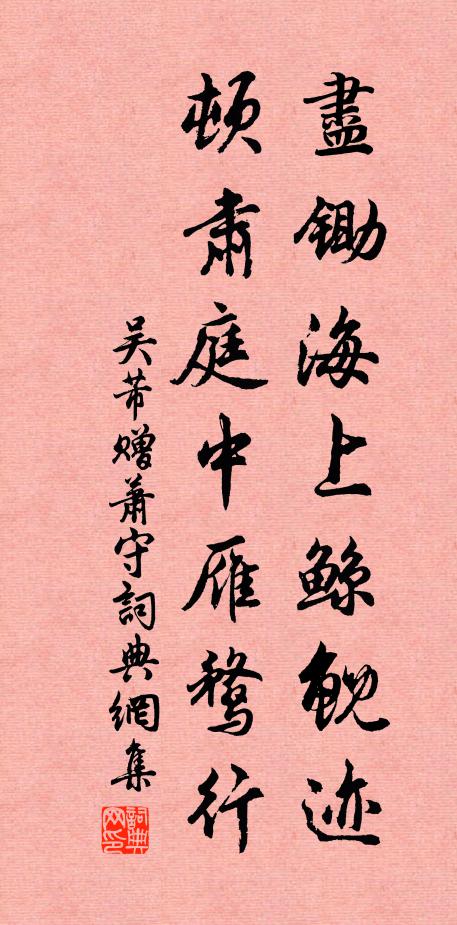 盡鋤海上鯨鯢迹
頓肅庭中雁鶩行
吴芾贈蕭守詞典網集
詞典网印